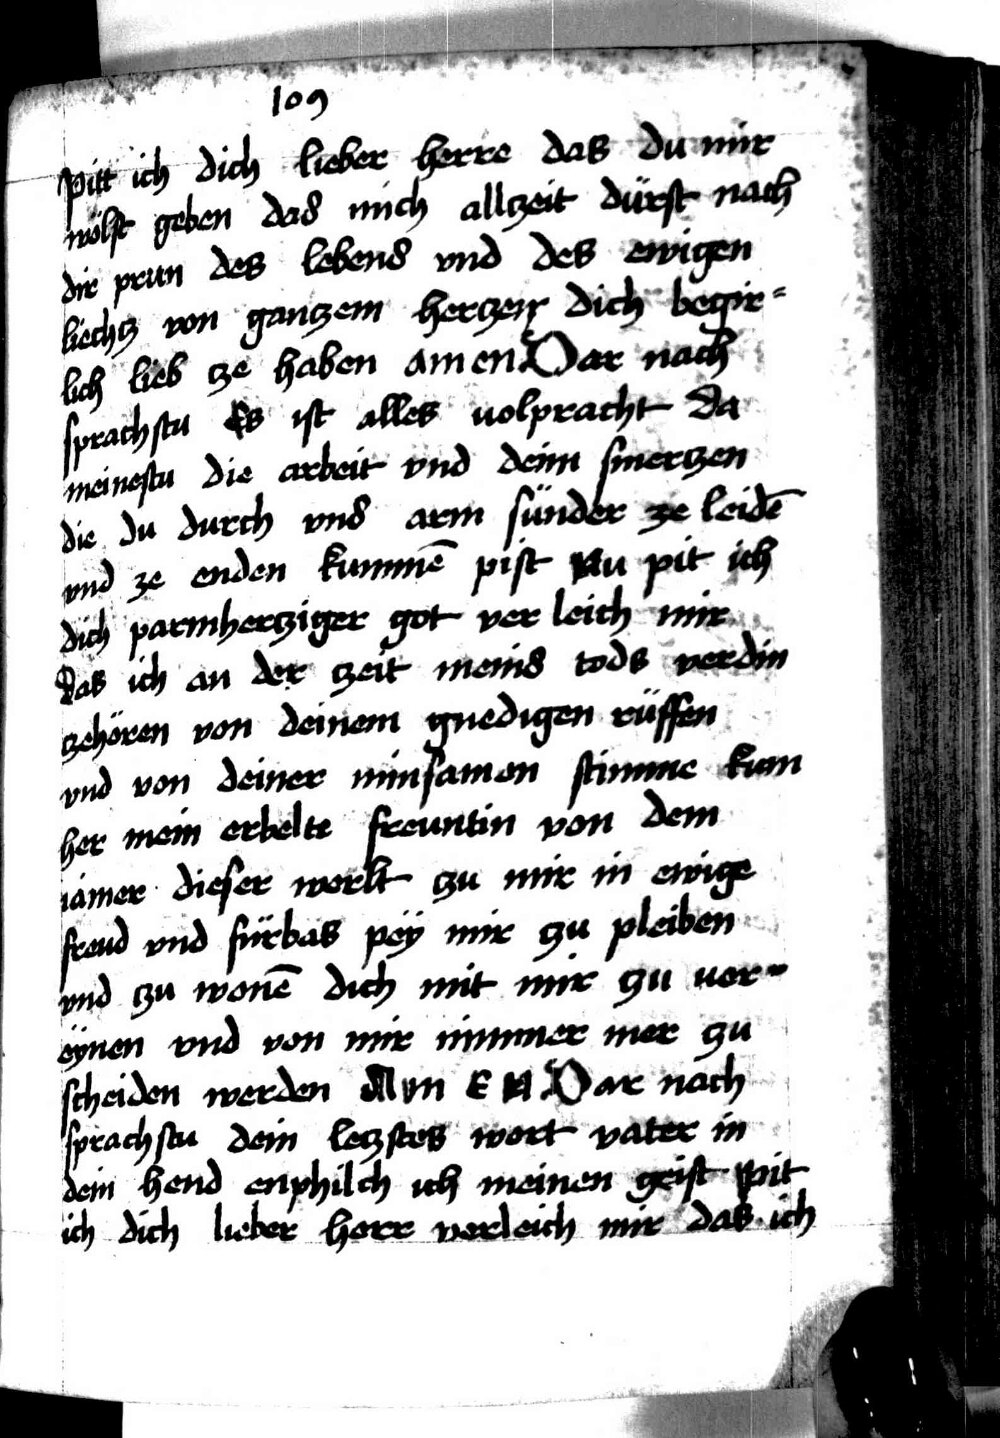 109
Pitt ich dich lieber herre das du mir
wölst geben das mich allzeit dürst nach
dir prun des lebens vnd des ewigen
liechtz von gantzem hertzen dich begir=
lich lieb tze haben amen Dar nach
sprachstu Es ist alles uolpracht Da
meinestu die arbeit vnd deim smertzen
die du durch vns arm sünder ze leidē
vnd ze enden kummē pist Nu pit ich
dich parmhertziger got ver leich mir
Das ich an der tzeit meins tods verdin
tzehören von deinem gnedigen rüffen
vnd von deiner minsamen stimme kum
her mein erbelte freuntin von dem
iamer dieser werlt tzu mir in ewige
freud vnd fürbas pey mir tzu pleiben
vnd tzu wonē dich mit mir tzu uer=
eynen vnd von mir nimmer mer tzu
scheiden werden AmEN Dar nach
sprachstu dein letzstes wort vater in
dein hend enphilch ich meinen geist Pit
ich dich lieber herr verleich mir das ich